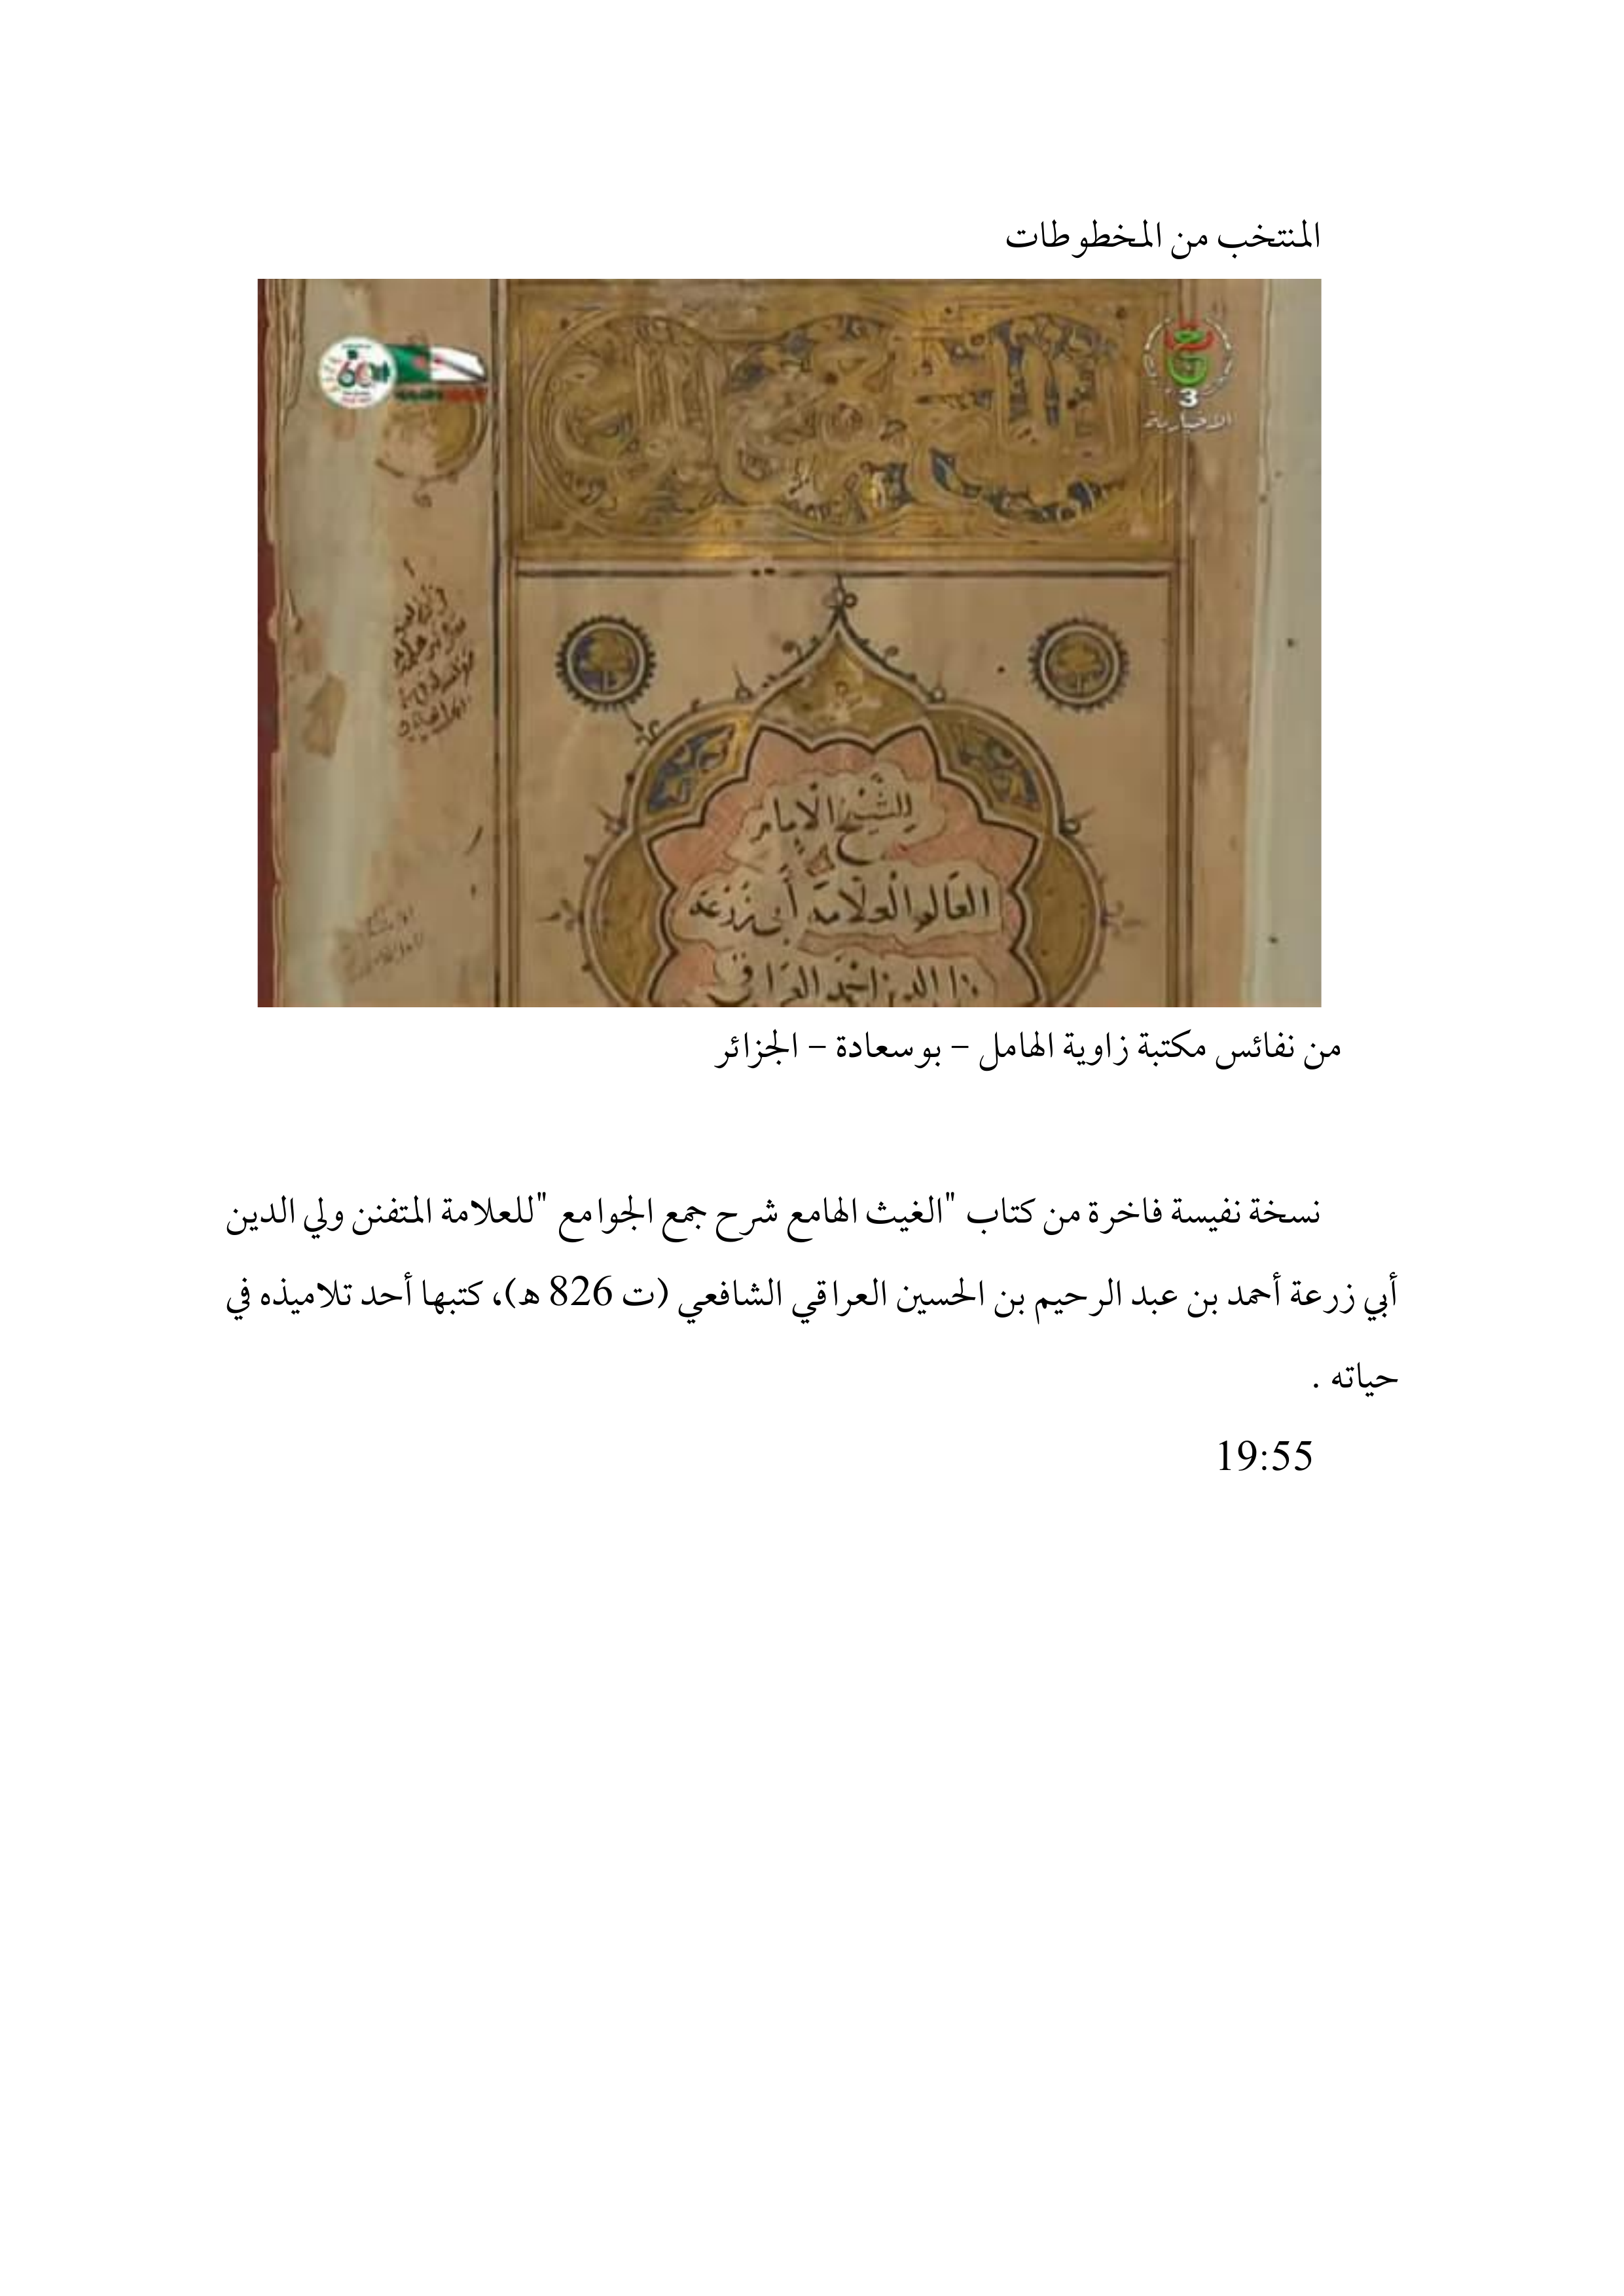 المنتخب من المخطوطات
60
3
الإخبارية
للشيخ الإمام
العالم العلامة أبي زرعة
أحمد العراقي
من نفائس مكتبة زاوية الهامل – بوسعادة – الجزائر
نسخة نفيسة فاخرة من كتاب "الغيث الهامع شرح جمع الجوامع "للعلامة المتفنن ولي الدين
أبي زرعة أحمد بن عبد الرحيم بن الحسين العراقي الشافعي (ت 826 ه)، كتبها أحد تلاميذه في
حياته .
19:55